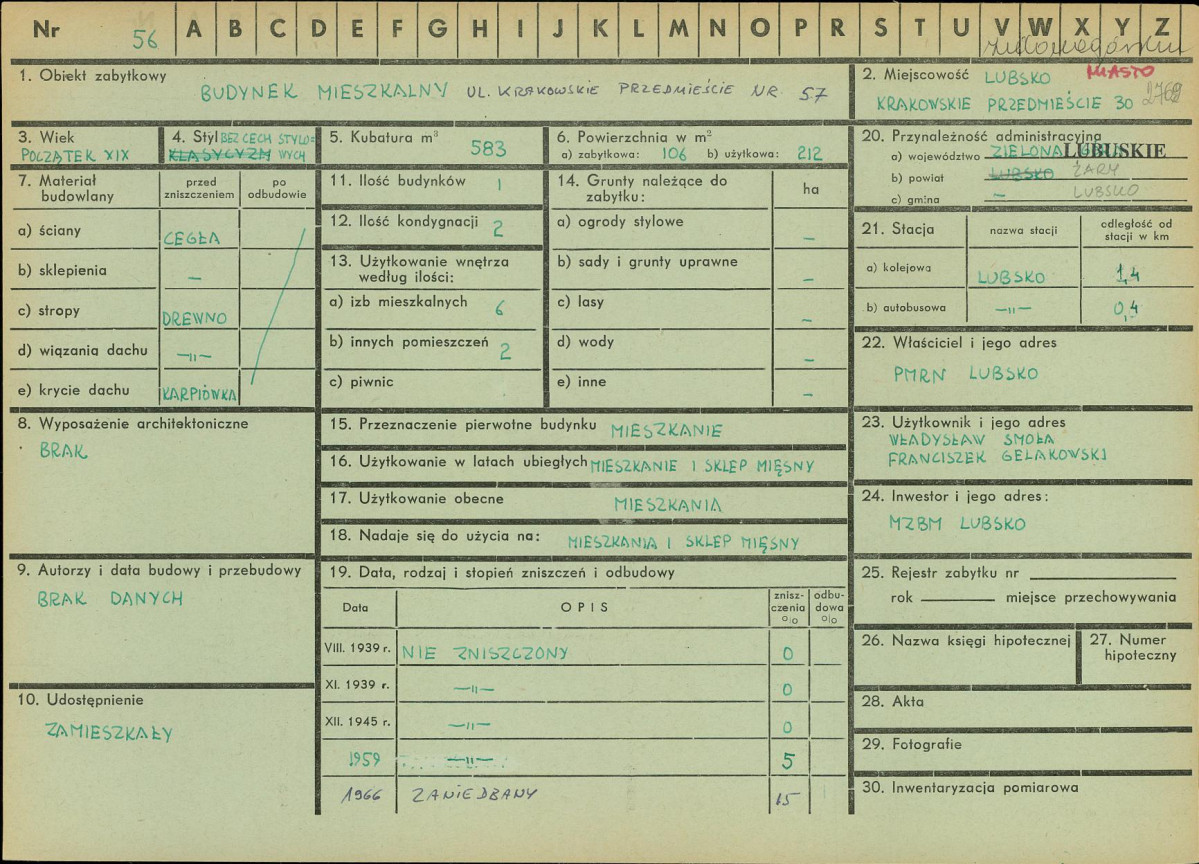 Nr 56 A B C D E F G H I J K L M N O P R S T U V W X Y Z
1. Obiekt zabytkowy
BUDYNEK MIESZKALNY UL. KRAKOWSKIE PRZEDMIEŚCIE NR. 57
2. Miejscowość LUBSKO MIASTO
KRAKOWSKIE PRZEDMIEŚCIE 30
3. Wiek
POCZĄTEK XIX
4. Styl BEZ CECH STYLO=
KLASYCYZM WYCH
5. Kubatura m³ 583
6. Powierzchnia w m²
a) zabytkowa: 106 b) użytkowa: 212
7. Materiał budowlany
przed zniszczeniem
po odbudowie
a) ściany CEGŁA
b) sklepienia —
c) stropy DREWNO
d) wiązania dachu —"—
e) krycie dachu KARPIÓWKA
8. Wyposażenie architektoniczne
BRAK
9. Autorzy i data budowy i przebudowy
BRAK DANYCH
10. Udostępnienie
ZAMIESZKAŁY
11. Ilość budynków 1
12. Ilość kondygnacji 2
13. Użytkowanie wnętrza
według ilości:
a) izb mieszkalnych 6
b) innych pomieszczeń 2
c) piwnic
14. Grunty należące do
zabytku:
ha
a) ogrody stylowe —
b) sady i grunty uprawne —
c) lasy —
d) wody —
e) inne —
15. Przeznaczenie pierwotne budynku MIESZKANIE
16. Użytkowanie w latach ubiegłych MIESZKANIE I SKLEP MIĘSNY
17. Użytkowanie obecne MIESZKANIA
18. Nadaje się do użycia na: MIESZKANIA I SKLEP MIĘSNY
19. Data, rodzaj i stopień zniszczeń i odbudowy
Data OPIS znisz-czenia o|o odbu-dowa o|o
VIII. 1939 r. NIE ZNISZCZONY 0
XI. 1939 r. —"— 0
XII. 1945 r. —"— 0
1959 —"— 5
1966 ZANIEDBANY 15
20. Przynależność administracyjna
a) województwo ZIELONA LUBUSKIE
b) powiat LUBSKO ŻARY
c) gmina — LUBSKO
21. Stacja
nazwa stacji
odległość od
stacji w km
a) kolejowa LUBSKO 1,4
b) autobusowa —"— 0,4
22. Właściciel i jego adres
PMRN LUBSKO
23. Użytkownik i jego adres
WŁADYSŁAW SMOŁA
FRANCISZEK GELAKOWSKI
24. Inwestor i jego adres:
MZBM LUBSKO
25. Rejestr zabytku nr
rok miejsce przechowywania
26. Nazwa księgi hipotecznej
27. Numer
hipoteczny
28. Akta
29. Fotografie
30. Inwentaryzacja pomiarowa